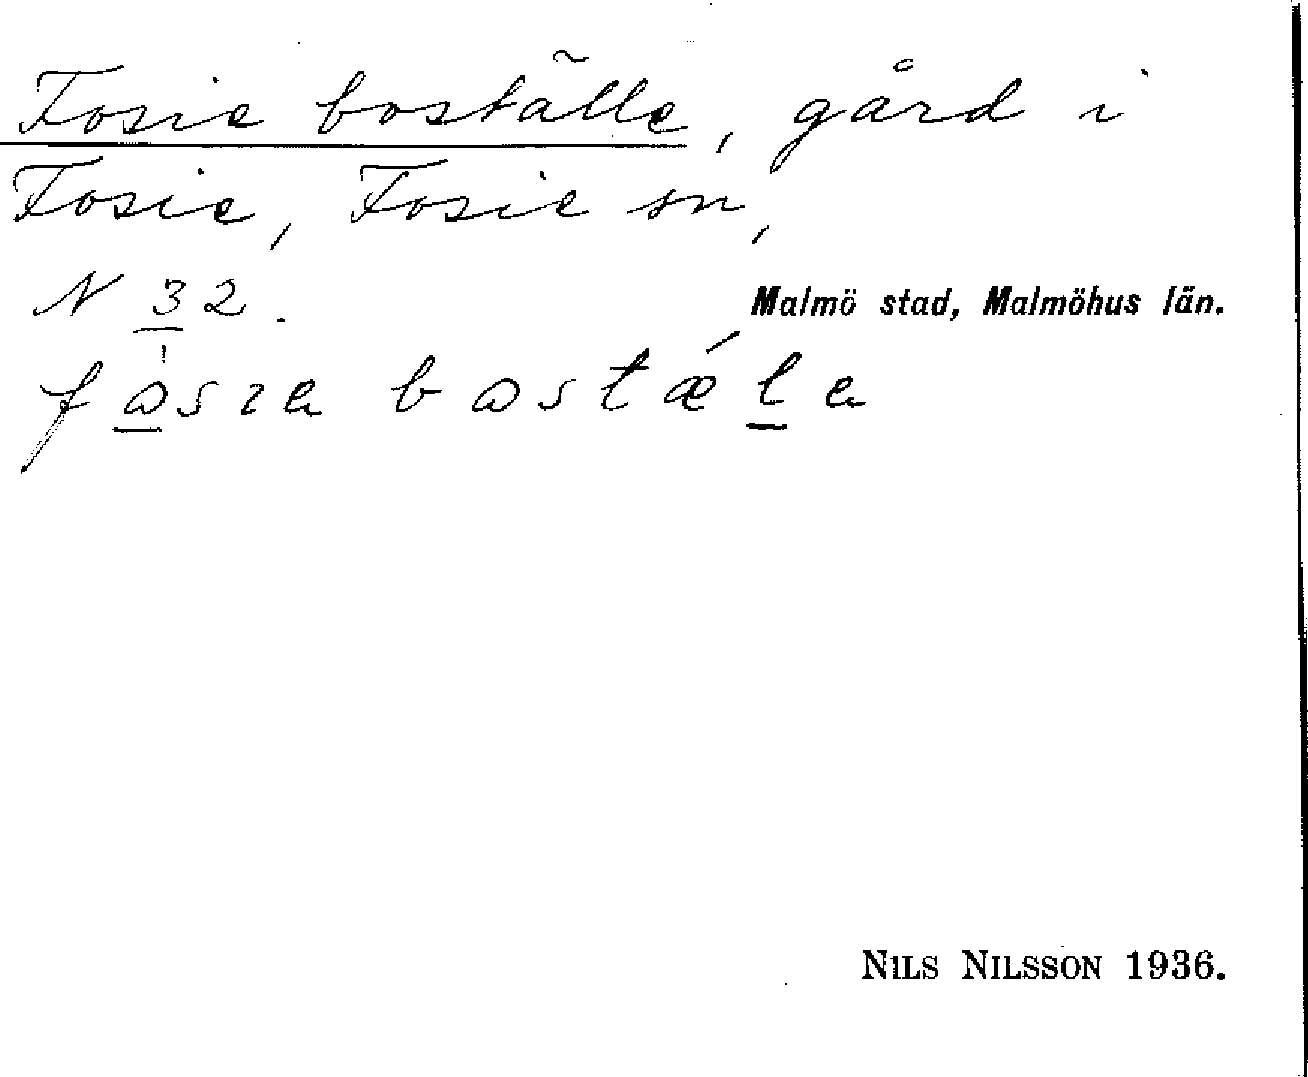 Fosie boställe, gård i
Fosie, Fosie sn,
N 32.
Malmö stad, Malmöhus län.
NILS NILSSON 1936.